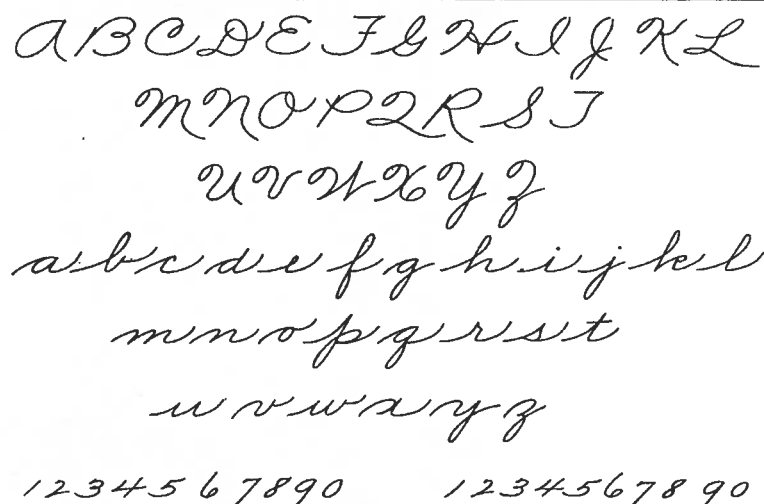 A B C D E F G H I J K L
M N O P Q R S T
U V W X Y Z
a b c d e f g h i j k l
m n o p q r s t
u v w x y z
1 2 3 4 5 6 7 8 9 0 1 2 3 4 5 6 7 8 9 0